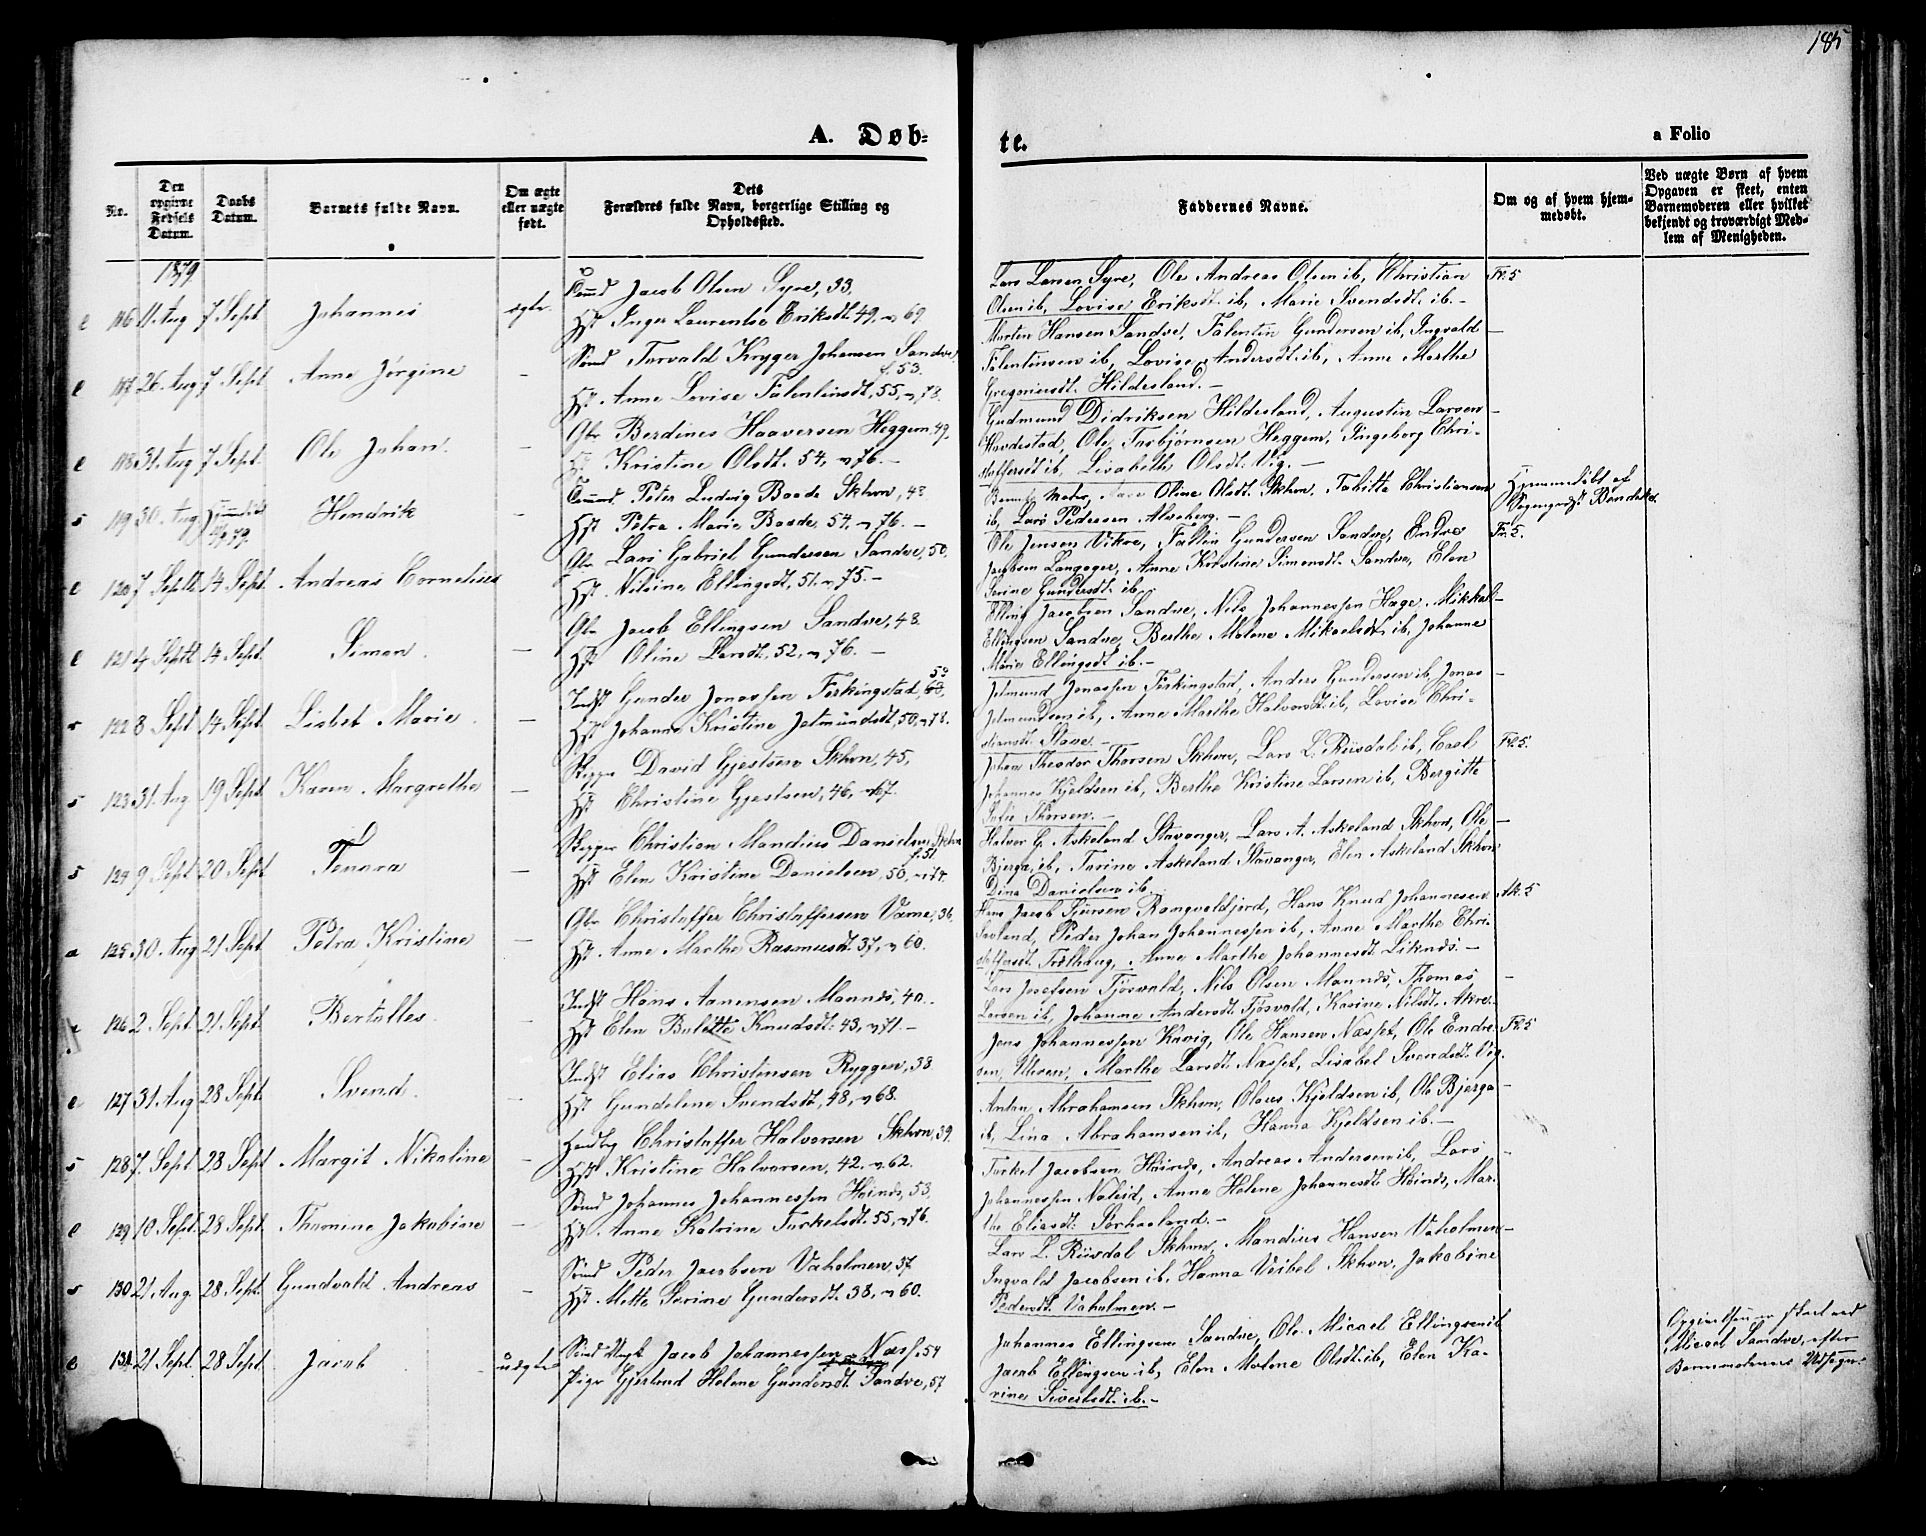 185
A. Døb-
te.
a Folio
No.
Den opgivne Fødsels Datum.
Daabs Datum.
Barnets fulde Navn.
Om ægte eller uægte født.
Dets
Forældres fulde Navn, borgerlige Stilling og
Opholdssted.
Faddernes Navne.
Om og af hvem hjem-
medøbt.
Ved uægte Børn af hvem
Opgaven er skeet, enten
Barnemoderen eller hvilket
bekjendt og troværdigt Med-
lem af Menigheden.
1879
Jacob Olsen Syre, 33.
e 116 11 Aug 7 Sept Johannes ægte
Hst Inger Laurentse Eriksdt. 49, 69
Lars Larsen Syre, Ole Andreas Olsen ib, Christian Fr. 5
Olsen ib, Lovise Eriksdt. ib, Marie Svendsdt. ib. -
Tarvald Kryger Johansen Sandve,
f. 53.
e 117 26 Aug 7 Sept Anne Jørgine -
Hst. Anne Lovise Falentinsdt, 55, 78.
Morten Hansen Sandve, Falentin Gundersen ib, Ingvald -
Falentinsen ib, Lovise Andersdt. ib, Anne Marthe
Gregoriusdt. Hildesland. -
Gbr Berdines Haaversen Heggem, 49,
e 118 31 Aug 7 Sept. Ole Johan. -
Hst Kristine Olsdt. 54, 76. -
Gudmund Didriksen Hildesland, Augustin Larsen -
Havdestad, Ole Torbjørnsen Heggem, Ingeborg Chri-
stoffersdt ib, Lisabeth Olsdt. Vig. -
Peter Ludvig Baade Skhvn, 48
s 119 30 Aug Hendrik -
Hst Petra Marie Baade, 54, 76. -
Barnets Moder, Oline Olsdt. Skhvn, Tabitta Christiansen Hjemmedøbt af
ib, Lars Pedersen Alvaberg. - Sogneprest
Gbr Lars Gabriel Gundersen Sandve, 50.
e 120 7 Septb 14 Sept. Andreas Cornelius
Hst. Nilsine Ellingsdt, 51. 75. -
Ole Jensen Vikre, Fallin Gundersen Sandve, Endre Fr. 5.
Jacobsen Langager, Anne Kristine Simonsdt. Sandve, Elen
Serine Gundersdt. ib.
Gbr Jacob Ellingsen Sandve, 48.
e 121 4 Septb 14 Sept. Simon. -
Hst Oline Larsdt, 52, 76. -
Elling Jacobsen Sandve, Nils Johannessen Hage, Mikkel -
Ellingsen Sandve, Berthe Malene Mikaelsdt ib, Johanne
Marie Ellingsdt ib. -
50
Indst Gunder Jonassen Ferkingstad,
s 122 8 Sept 14 Sept. Lisbet Marie. -
Hst Johanne Kristine Jetmundsdt, 50, 78.
Jetmund Jonassen Ferkingstad, Anders Gundersen ib, Jonas -
Jetmundsen ib, Anne Marthe Halvorsdt ib, Lovise Chri-
stiansdt. Stave. -
Skipper David Gjestsen Skhvn, 45,
s 123 31 Aug 19 Sept. Karen Margrethe -
Hst Christine Gjestsen, 46, 67.
Johan Theodor Thorsen Skhvn, Lars L. Riisdal ib, Carl Fr. 5.
Johannes Kjeldsen ib, Berthe Kristine Larsen ib, Bergitte
Skipper Christian Mandius Danielsen Skhvn
f. 51.
s 124 9 Sept 20 Sept Tenora -
Hst Elen Kristine Danielsen, 50, 74.
Halvor G. Askeland Stavanger, Lars A. Askeland Skhvn, Ole -
Bjerga ib, Tarine Askeland Stavanger, Elen Askeland Skhvn
Dina Danielsen ib.
Gbr Christoffer Christoffersen Værne, 36.
a 125 30 Aug 21 Sept. Petra Kristine -
Hst. Anne Marthe Rasmusdt. 37, 60.
Hans Jacob Sjursen Rongvaldjord, Hans Knud Johannesen Ak. 5
Sævland, Peder Johan Johannessen ib, Anne Marthe Chri-
stoffersdt. Trælhaug, Anne Marthe Johannesdt. Liknæs. -
Indst Hans Aanensen Mannæs, 40.
126 2 Sept. 21 Sept. Bertulles. -
Hst Elen Bulette Knudsdt. 43, 71. -
Lars Josefsen Tjøsvald, Nils Olsen Mannæs, Thomas -
Larsen ib, Johanne Andersdt. Tjøsvald, Karine Nilsdt. Akre.
Indst Elias Christensen Ryggen, 38
e 127 31 Aug 28 Sept. Svend. -
Hst Gundelene Svendsdt, 48, 68.
Jens Johannessen Kavig, Ole Hansen Næsset, Ole Endre- Fr. 5
sen, Utven, Marthe Larsdt. Næsset, Lisabet Svendsdt. Vig.
Christoffer Halvorsen Skhvn, 39.
s 128 7. Sept 28 Sept Margit Nikoline -
Hst Kristine Halvorsen, 42. 62.
Anton Abrahamsen Skhvn, Olaus Kjeldsen ib, Ole Bjerga -
ib, Lina Abrahamsen ib, Hanna Kjeldsen ib. -
Johannes Johannessen Høinæs, 53.
e 129 10 Sept. 28 Sept. Thomine Jakobine -
Hst. Anne Katrine Torkelsdt. 55, 76.
Torkel Jacobsen Høinæs, Andreas Andersen ib, Lars -
Johannessen Naleid, Anne Helene Johannesdt. Høinæs, Mar-
the Eliasdt. Sørhaaland. -
Peder Jacobsen Vaholmen, 37
s 130 21 Aug. 28 Sept. Gundvald Andreas -
Hst. Mette Serine Gundersdt. 38, 60.
Lars L. Riisdal Skhvn, Mandius Hansen Vaholmen -
Ingvald Jacobsen ib, Hanna Veibel Skhvn, Jakobine
Pedersdt. Vaholmen. -
Jacob Johannessen Næss f. 54
e 131 21 Sept. 28 Sept. Jacob uægte
Pige Gjerlend Helene Gundersdt. Sandve, 57
Johannes Ellingsen Sandve, Ole Micael Ellingsen ib
Jacob Ellingsen ib, Elen Malene Olsdt. ib, Elen Ka-
rine Siverlsdt. ib. -
Opgivelsen er skeet ved
Micael Sandve, efter
Barnemoderens Udsagn